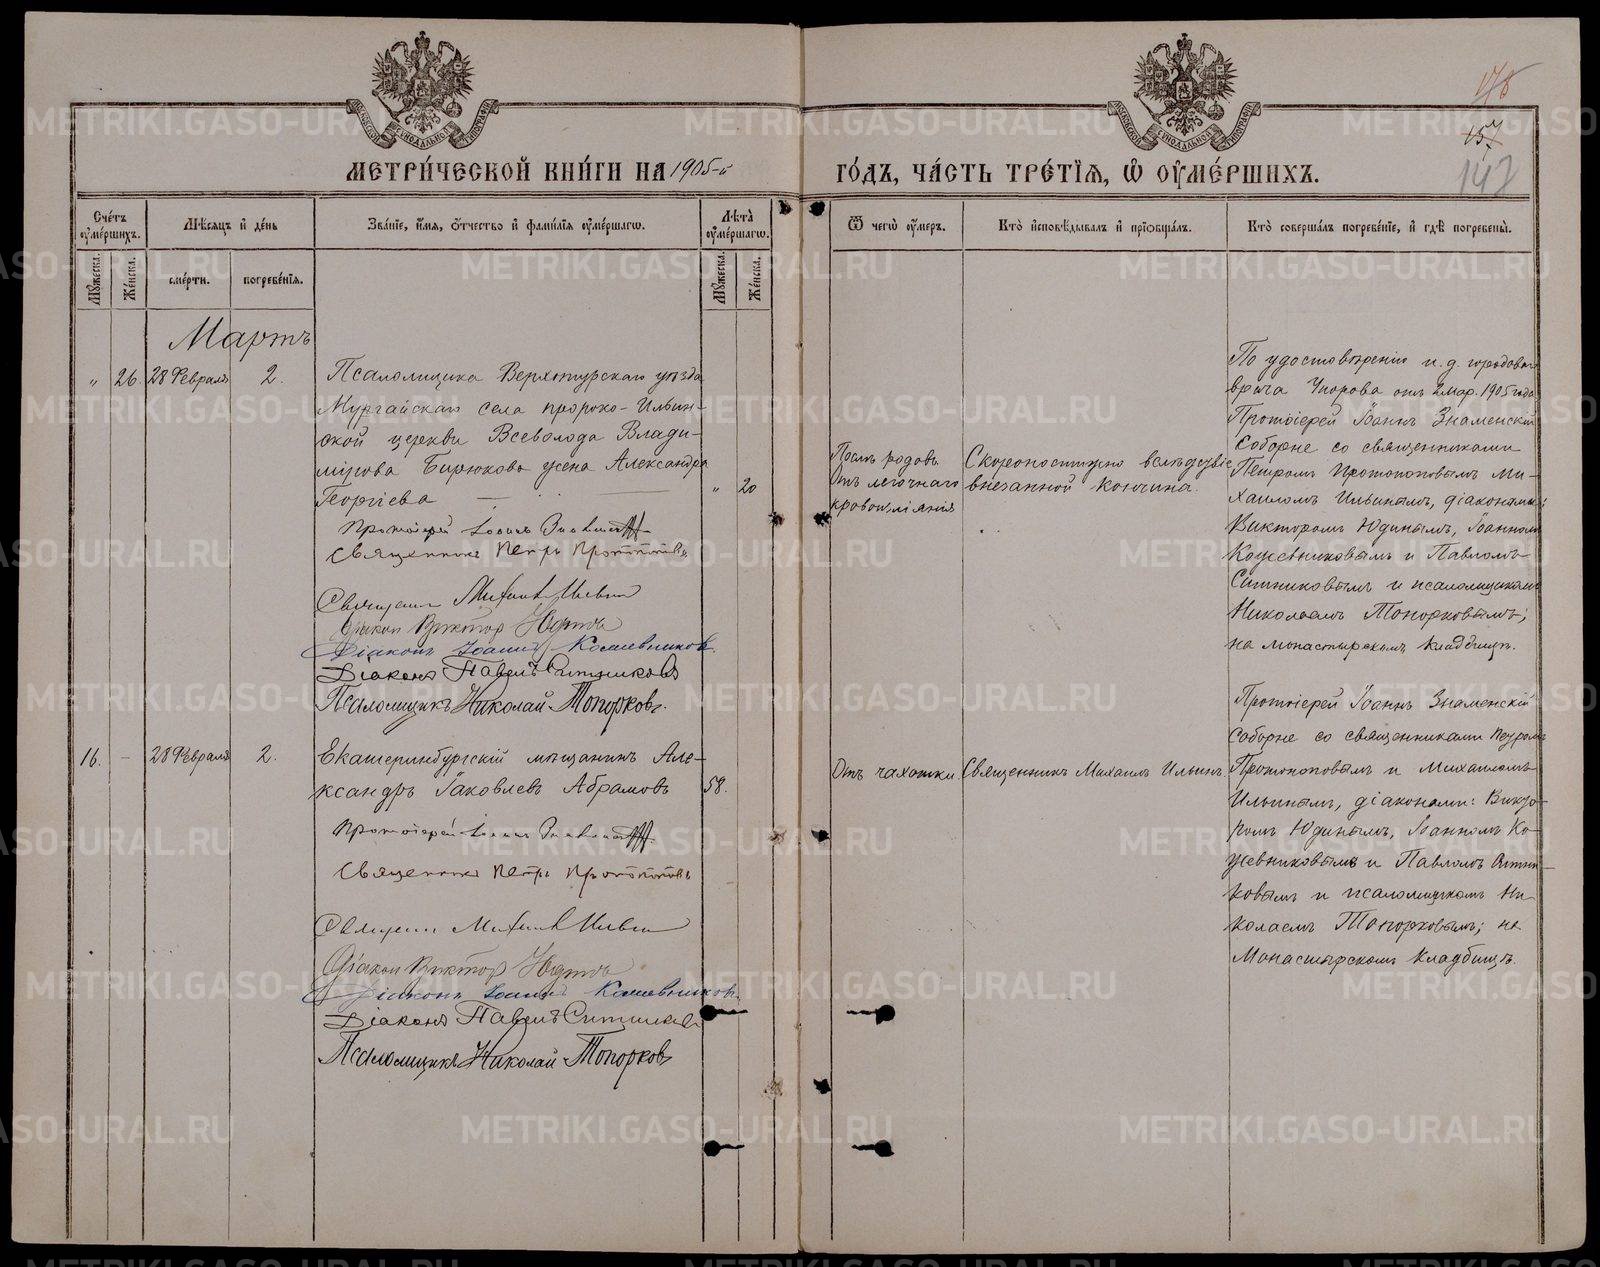 МЕТРИ́ЧЕСКОЙ КНИ́ГИ НА 1905-й
ГО́ДЪ, ЧА́СТЬ ТРЕ́ТІѦ, Ѡ ОУМЕ́РШИХЪ.
157
147
Сче́тъ оуме́ршихъ.
Мꙋжеска.
Женска.
Мѣсяцъ и день
сме́рти.
погребе́нїѧ.
Зва́нїе, и́мѧ, о́тчество и фами́лїѧ оуме́ршагѡ.
Лѣ́та оуме́ршагѡ.
Мꙋжеска.
Женска.
Ѿ чегѡ̀ оу́меръ.
Кто̀ и҆сповѣ́дывалъ и҆ прїѡбща́лъ.
Кто̀ соверша́лъ погребе́нїе, и҆ гдѣ̀ погребены̀.
Мартъ
„ 26. 28 Февраля 2.
Псаломщика Верхотурскаго уѣзда
Мургайскаго села пророко-Ильин-
ской церкви Всеволода Влади-
мірова Бирюкова жена Александра
Георгіева
„ 20
Протоіерей Іоаннъ Знаменскій
Священникъ Петръ Протопоповъ
Священникъ Михаилъ Ильинъ
Діаконъ Викторъ Юдинъ
Діаконъ Іоаннъ Кожевниковъ.
Діаконъ Павелъ Ситниковъ
Псаломщикъ Николай Топорковъ.
Послѣ родовъ
Отъ легочнаго
кровоизліянія
Скоропостижно вслѣдствіе
внезапной кончины.
По удостовѣренію и. д. городоваго
врача отъ 2 мар. 1905 года
Протоіерей Іоаннъ Знаменскій
Соборне со священниками
Петромъ Протопоповымъ Ми-
хаиломъ Ильинымъ, діаконами:
Викторомъ Юдинымъ, Іоанномъ
Кожевниковымъ и Павломъ
Ситниковымъ и псаломщикомъ
Николаемъ Топорковымъ;
на монастырскомъ кладбищѣ.
16. — 28 Февраля 2.
Екатеринбургскій мѣщанинъ Але-
ксандръ Іаковлевъ Абрамовъ
58.
Протоіерей Іоаннъ Знаменскій
Священникъ Петръ Протопоповъ
Священникъ Михаилъ Ильинъ
Діаконъ Викторъ Юдинъ
Діаконъ Іоаннъ Кожевниковъ.
Діаконъ Павелъ Ситниковъ
Псаломщикъ Николай Топорковъ
Отъ чахотки
Священникъ Михаилъ Ильинъ
Протоіерей Іоаннъ Знаменскій
Соборне со священниками Петромъ
Протопоповымъ и Михаиломъ
Ильинымъ, діаконами: Викто-
ромъ Юдинымъ, Іоанномъ Ко-
жевниковымъ и Павломъ Ситни-
ковымъ и псаломщикомъ Ни-
колаемъ Топорковымъ; на
Монастырскомъ кладбищѣ.
METRIKI.GASO-URAL.RU